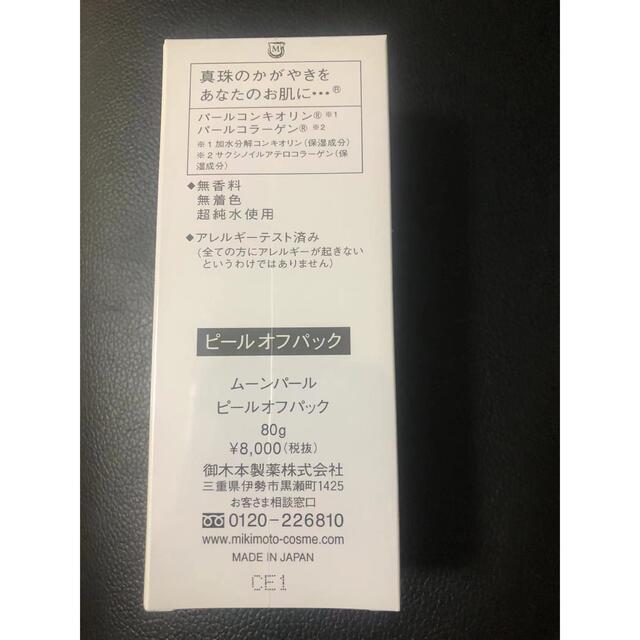 M
真珠のかがやきを
あなたのお肌に…®
パールコンキオリン® ※1
パールコラーゲン® ※2
※1 加水分解コンキオリン（保湿成分）
※2 サクシノイルアテロコラーゲン（保
湿成分）
◆無香料
無着色
超純水使用
◆アレルギーテスト済み
（全ての方にアレルギーが起きない
というわけではありません）
ピールオフパック
ムーンパール
ピールオフパック
80g
¥8,000（税抜）
御木本製薬株式会社
三重県伊勢市黒瀬町1425
お客さま相談窓口
0120-226810
www.mikimoto-cosme.com
MADE IN JAPAN
CE1